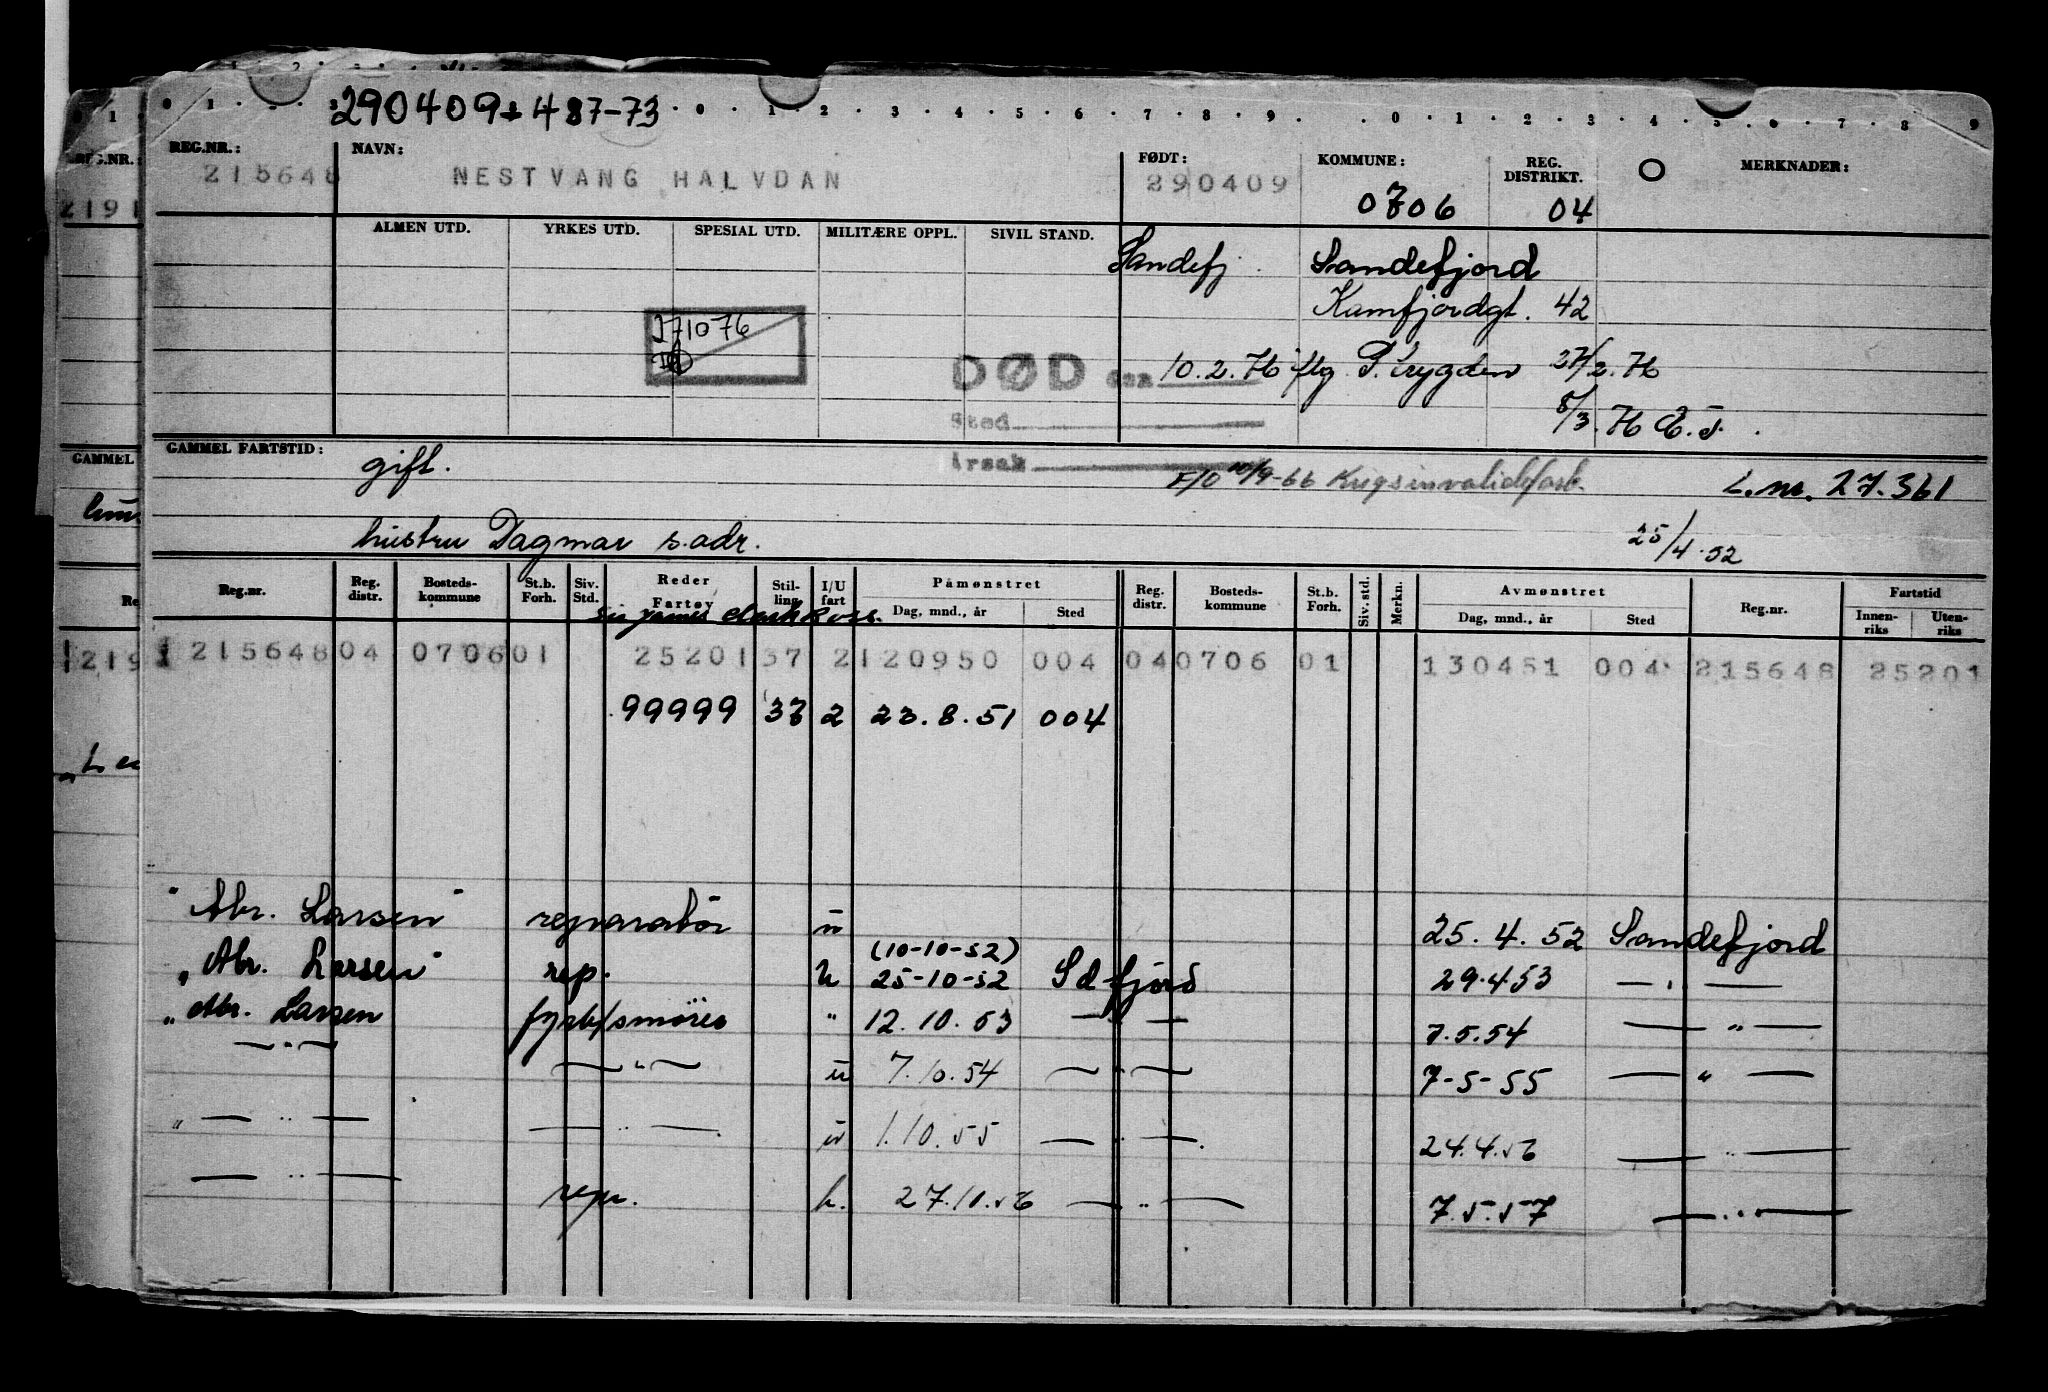 290409+487-73
REG.NR.: NAVN: FØDT: KOMMUNE: REG. DISTRIKT. O MERKNADER:
215648 NESTVANG HALVDAN 290409 0706 04
ALMEN UTD. YRKES UTD. SPESIAL UTD. MILITÆRE OPPL. SIVIL STAND.
Sandefj. Sandefjord
Kamfjordgt. 42
271076
DØD den 10.2.76 iflg. P. trygden 27/2.76
Sted
8/3.76 E.J.
GAMMEL FARTSTID: gift. Årsak
F/O 10/9-66 Krigsinvalidefork. L.nr. 27.361
hustru Dagmar s.adr. 25/4.52
Reg.nr. Reg. distr. Bosteds-kommune St.b. Forh. Siv. Std. Reder Fartøy Stil-ling I/U fart Påmønstret Dag, mnd., år Sted Reg. distr. Bosteds-kommune St.b. Forh. Siv. std. Merkn. Avmønstret Dag, mnd., år Sted Reg.nr. Fartstid Innen-riks Uten-riks
Sir James Clark Ross.
215648 04 0706 01 25201 37 2 120950 004 04 0706 01 130451 004 215648 25201
99999 33 2 23.8.51 004
"Abr. Larsen" reparatør u 25.4.52 Sandefjord
(10-10-52)
"Abr. Larsen" rep. u 25-10-52 Sdfjord 29.4.53 — " —
"Abr. Larsen fyrb/smører " 12.10.53 — " — 7.5.54 — " —
— " — — " — u 7.10.54 — " — 7-5-55 — " —
" — " — — " — u 1.10.55 — " — 24.4.56 — " —
— " — repr. u. 27.10.56 — " — 7.5.57 — " —
REG.NR.:
2191
GAMMEL
219